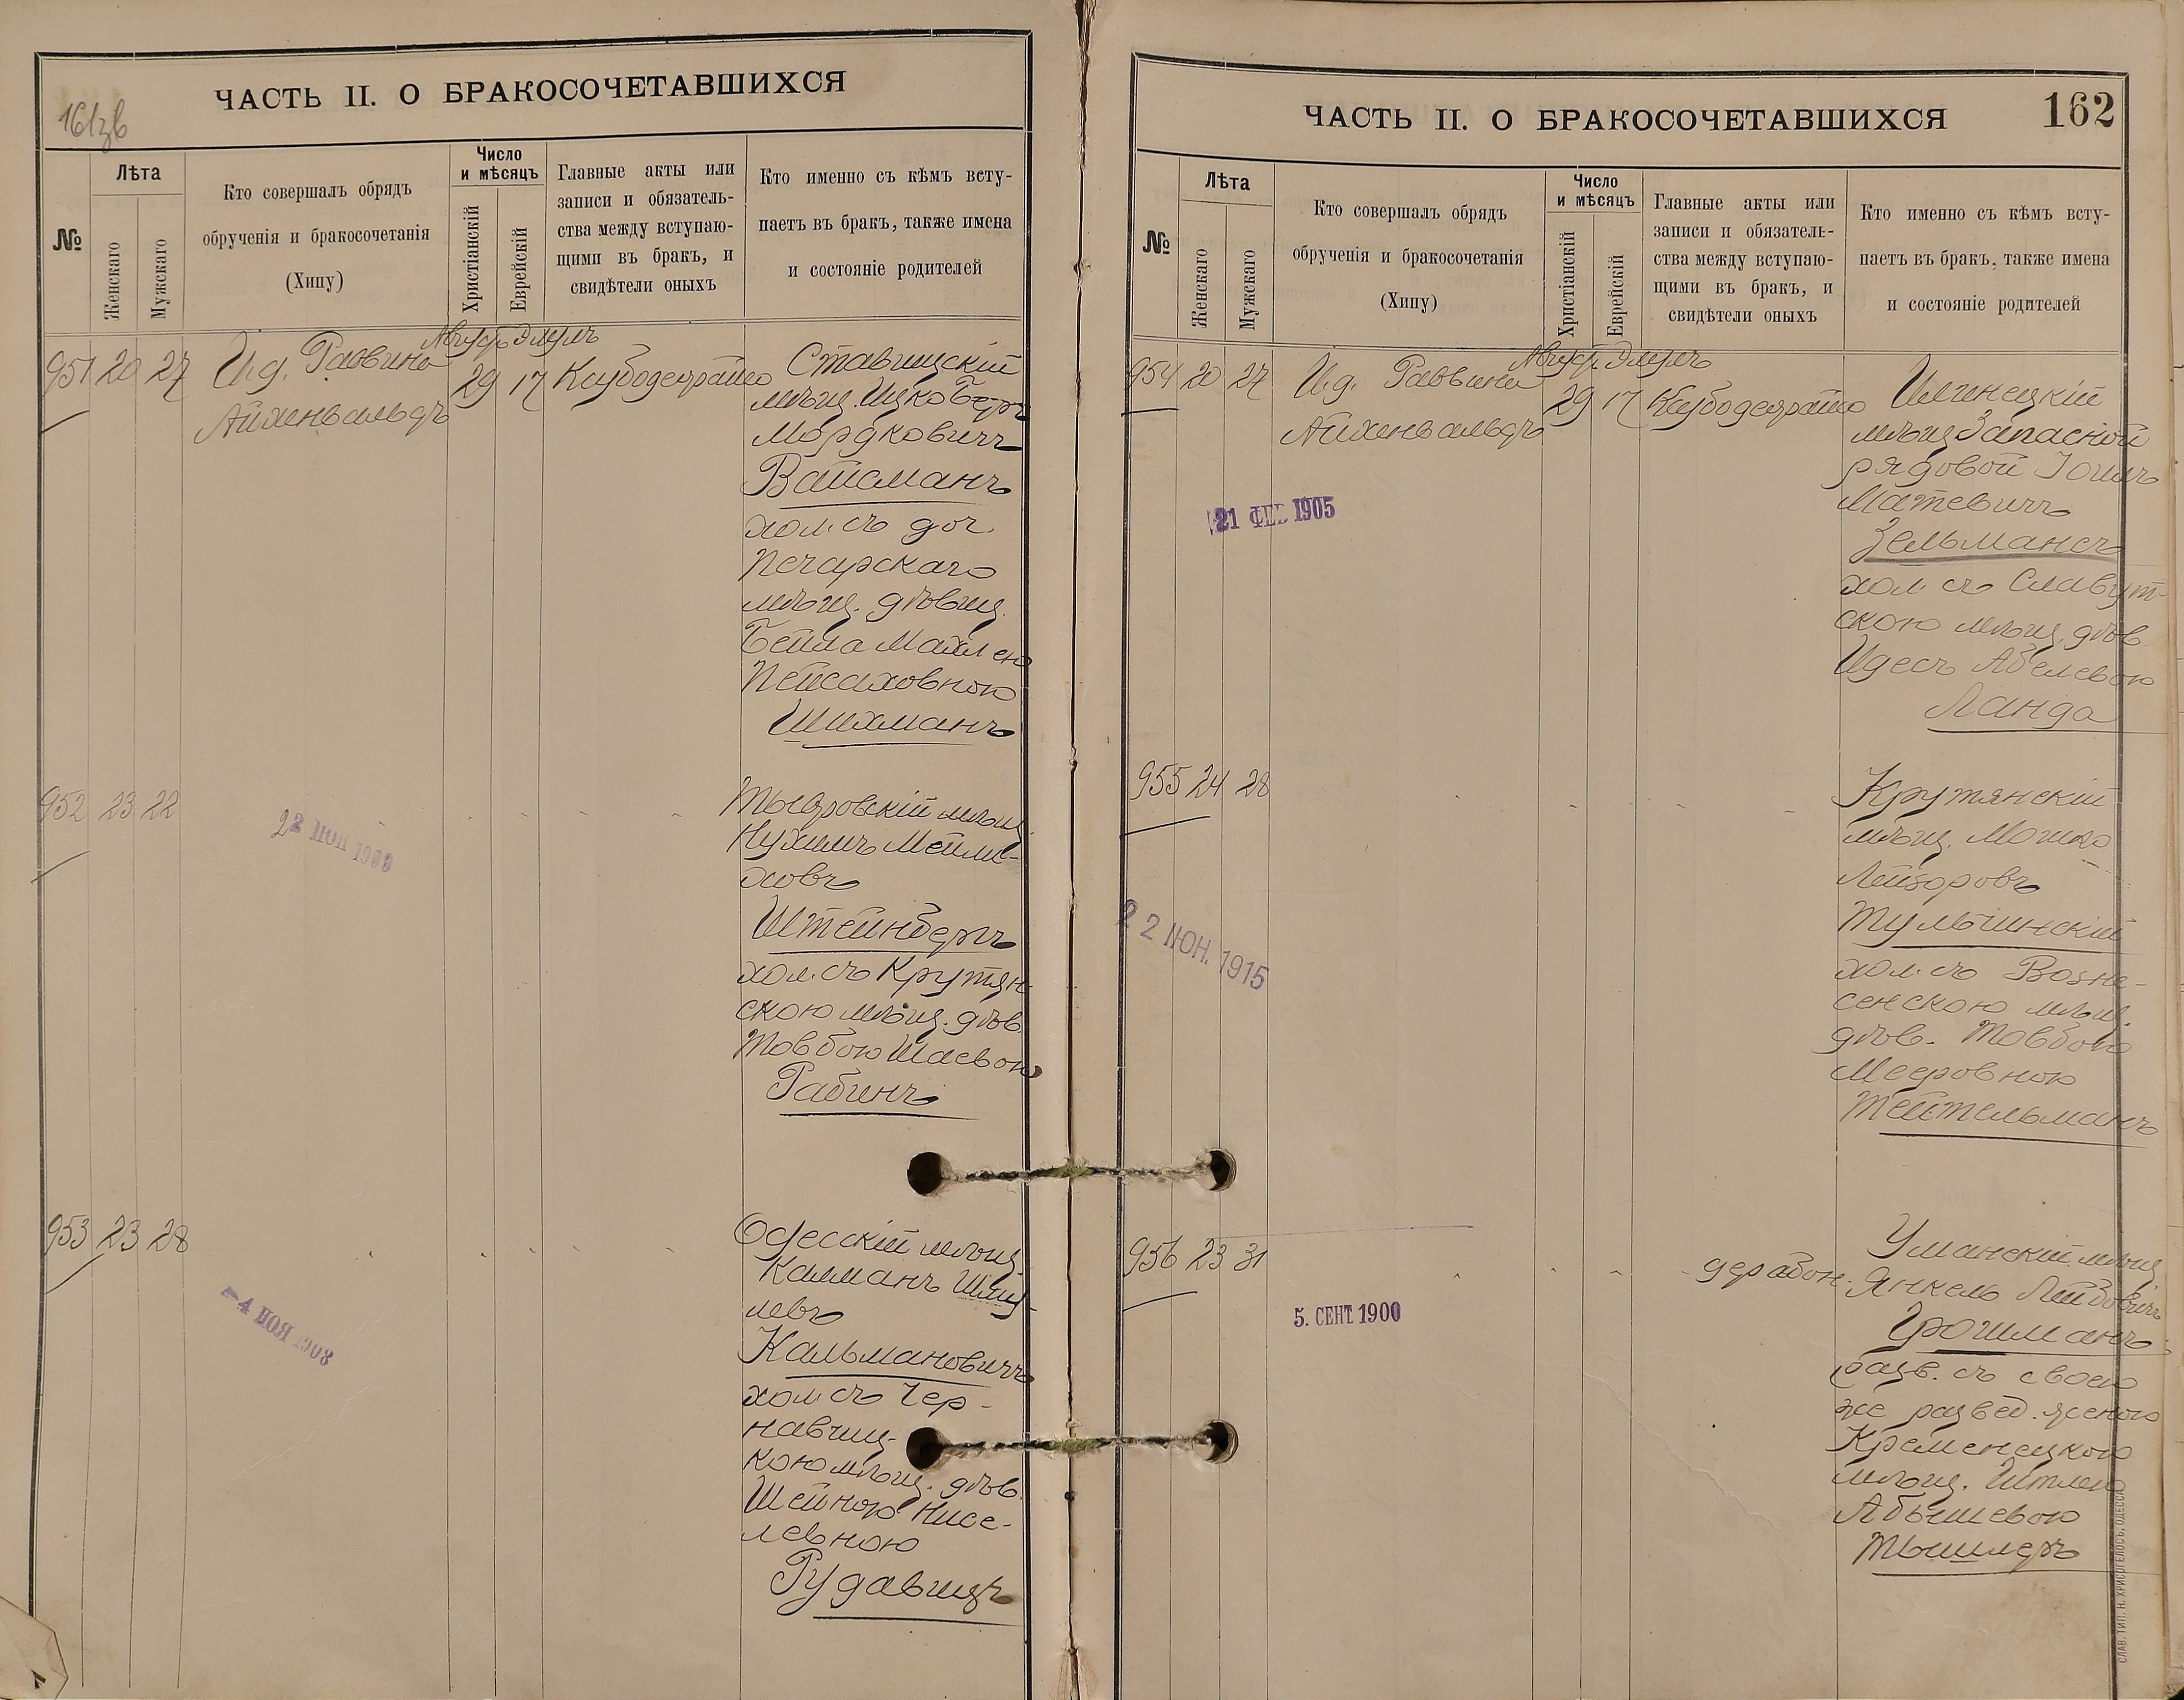 ЧАСТЬ II. О БРАКОСОЧЕТАВШИХСЯ
№
Лѣта
Женскаго
Мужскаго
Кто совершалъ обрядъ
обрученія и бракосочетанія
(Хипу)
Число
и мѣсяцъ
Христіанскій
Еврейскій
Главные акты или
записи и обязатель-
ства между вступаю-
щими въ бракъ, и
свидѣтели оныхъ
Кто именно съ кѣмъ всту-
паетъ въ бракъ, также имена
и состояніе родителей
951 20 27
И.д. Раввина
Айхенвальдъ
Август. Элулъ
29 17
Ставищскій
мѣщ. Ицко Беръ
Мордковичъ
Вайсманъ
хол. съ доч.
Печарскаго
мѣщ. дѣвиц.
Бейла Махлею
Пейсаховною
Шихманъ
952 23 22
мѣщ.
Нухимъ Мейли-
ховъ
Штейнбергъ
хол. съ Крутян-
скою мѣщ. дѣв.
Товбою Шаевою
Рабинъ
953 23 28
Одесскій мѣщ.
Калманъ Шму-
левъ
Кальмановичъ
хол. съ Чер-
навчиц-
кою мѣщ. дѣв.
Шейною Нисе-
левною
Рудавицъ
ЧАСТЬ II. О БРАКОСОЧЕТАВШИХСЯ
162
№
Лѣта
Женскаго
Мужскаго
Кто совершалъ обрядъ
обрученія и бракосочетанія
(Хипу)
Число
и мѣсяцъ
Христіанскій
Еврейскій
Главные акты или
записи и обязатель-
ства между вступаю-
щими въ бракъ, и
свидѣтели оныхъ
Кто именно съ кѣмъ всту-
паетъ въ бракъ, также имена
и состояніе родителей
954 20 27
И.д. Раввина
Айхенвальдъ
Август. Элулъ
29 17
21 ФЕВ 1905
Илинецкій
мѣщ. Запасной
рядовой
Матевичъ
Зельманъ
хол. съ Славут-
скою мѣщ. дѣв.
Идесъ Абелевою
Ланда
955 24 28
22 ІЮН. 1915
Крутянскій
мѣщ. Мошко
Лейзоровъ
Тульчинскій
хол. съ Возне-
сенскою мѣщ.
дѣв. Товбою
Мееровною
Тейтельманъ
956 23 31
5. СЕНТ 1900
Уманскій мѣщ.
Янкель
Грошманъ
разв. съ своею
же развед. женою
Кременецкою
мѣщ.
СЛАВ. ТИП. Н. ХРИСОГЕЛОСЪ, ОДЕССА